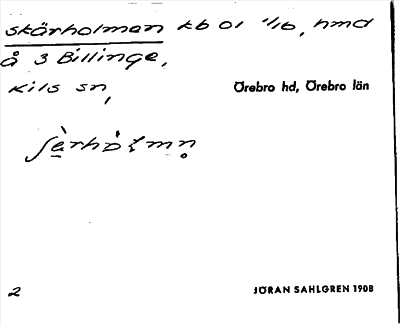 skärholmen kb 01 1/10, hmd
å 3 Billinge,
Kils sn,
Örebro hd, Örebro län
2
JÖRAN SAHLGREN 1908